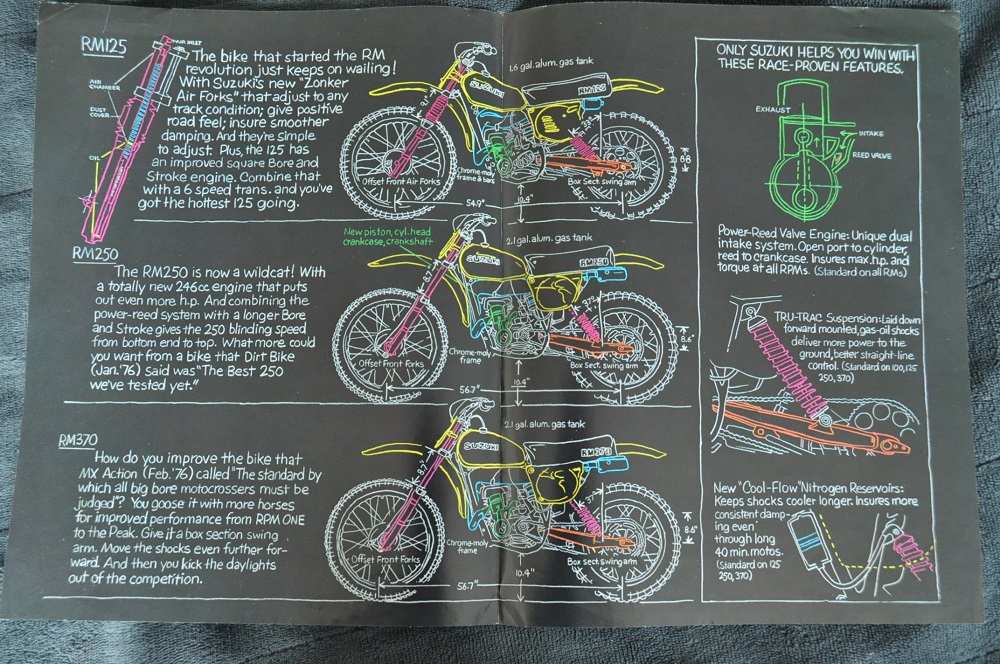 RM125
AIR INLET
AIR
CHAMBER
DUST
COVER
OIL
The bike that started the RM
revolution just keeps on wailing!
With Suzuki's new "Zonker
Air Forks" that adjust to any
track condition; give positive
road feel; insure smoother
damping. And they're simple
to adjust. Plus, the 125 has
an improved square Bore and
Stroke engine. Combine that
with a 6 speed trans. and you've
got the hottest 125 going.
1.6 gal. alum. gas tank
SUZUKI
RM125
Offset Front Air Forks
Chrome-moly
frame & bars
Box Sect. swing arm
54.9"
10.4"
RM250
The RM250 is now a wildcat! With
a totally new 246cc engine that puts
out even more h.p. And combining the
power-reed system with a longer Bore
and Stroke gives the 250 blinding speed
from bottom end to top. What more could
you want from a bike that Dirt Bike
(Jan. '76) said was "The Best 250
we've tested yet."
New piston, cyl. head
crankcase, crankshaft
2.1 gal. alum. gas tank
SUZUKI
RM250
8.7"
Offset Front Forks
Chrome-moly
frame
Box Sect. swing arm
8.6"
56.7"
10.4"
RM370
How do you improve the bike that
MX Action (Feb. '76) called "The standard by
which all big bore motocrossers must be
judged"? You goose it with more horses
for improved performance from RPM ONE
to the Peak. Give it a box section swing
arm. Move the shocks even further for-
ward. And then you kick the daylights
out of the competition.
2.1 gal. alum. gas tank
SUZUKI
RM370
8.7"
Offset Front Forks
Chrome-moly
frame
Box Sect. swing arm
8.6"
56.7"
10.4"
ONLY SUZUKI HELPS YOU WIN WITH
THESE RACE-PROVEN FEATURES.
EXHAUST
INTAKE
REED VALVE
Power-Reed Valve Engine: Unique dual
intake system. Open port to cylinder,
reed to crankcase. Insures max. h.p. and
torque at all RPMs. (Standard on all RMs)
TRU-TRAC Suspension: Laid down
forward mounted, gas-oil shocks
deliver more power to the
ground, better straight-line
control. (Standard on 100, 125
250, 370)
New "Cool-Flow" Nitrogen Reservoirs:
Keeps shocks cooler longer. Insures more
consistent damp-
ing even
through long
40 min. motos.
(Standard on 125
250, 370)